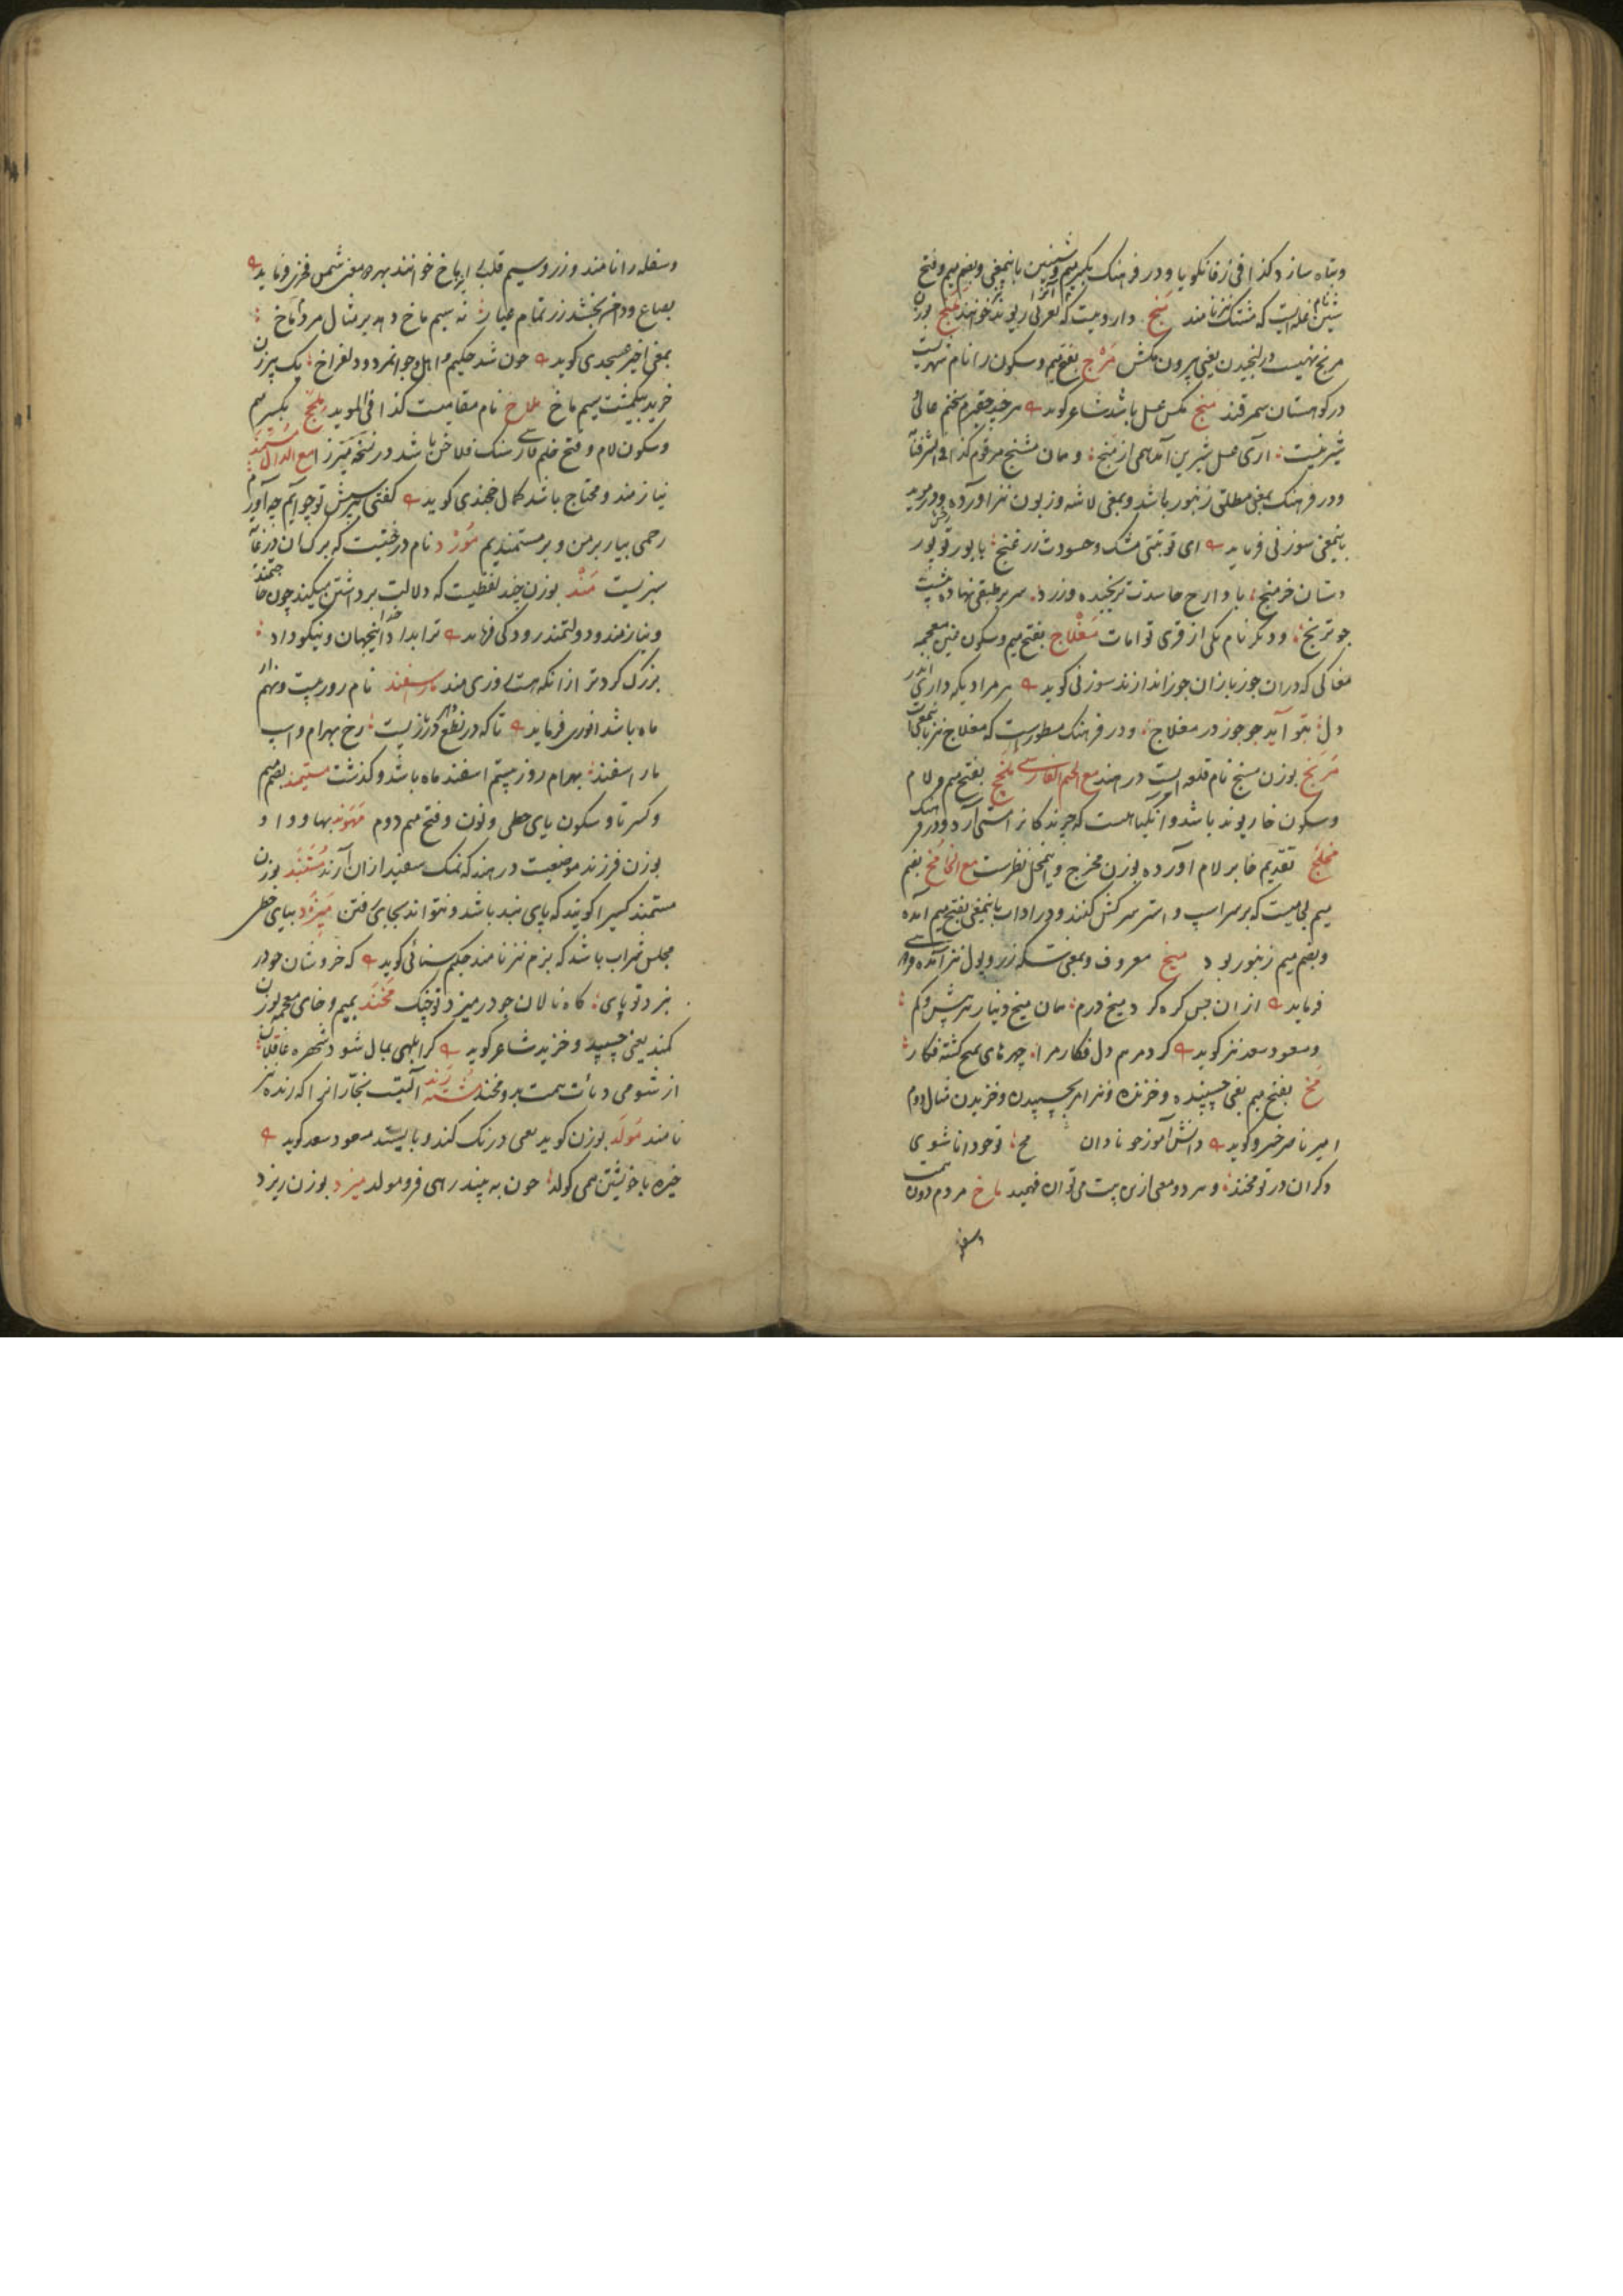 وتباه سازد کذا فی زفانگویا و در فرهنگ بکسر میم و شینین باینمعنی و بضم میم و فتح
شین نام غله ایست که مشنک نیز نامند منج داروییست که بعربی ریوند خوانند منج بوزن
مرنج نهیست در لنجیدن یعنی بیرون مکش مرج بفتح میم و سکون را نام شهریست
در کوهستان سمرقند منج مکس عسل باشد شاعر کوید هر چند حقیرم سخنم عالی
شیرینست آری عسل شیرین آید همی از منج و مان مشنج مرقوم کذا فی الشرفنا
و در فرهنک بمعنی مطلق زنبور باشد و بمعنی لاشه و زبون نیز آورده و در موید
باینمعنی سوزنی فرماید ای تو بتی مشک و حسودت زرغنج با بور تو بور
دستان خر منج
جو ترنج و دیکر نام یکی از قری توامات مغلاج بفتح میم و سکون غین معجمه
مغاکی که دران جوزبازان جوز اندازند سوزنی کوید هر مرادیکه داری اندر
دل بتو آید جو جوز در مغلاج و در فرهنک مسطورست که مغلاج نیز باینمعنی است
مرنج بوزن مسنج نام قلعه ایست در هند مع الجیم الفارسی ملخج بفتح میم و لام
و سکون خا ریوند باشد و آن کیاهست که جرند کانرا مستی آرد و در فرهنک
مخلج تقدیم خا بر لام آورده بوزن مخرج و اینمحل نظرست مع الخا مخ بضم
میم لجامیست که بر سر اسپ و استر سرکش کنند و در اداب باینمعنی بفتح میم آمده
و بضم میم زنبور بود میخ معروف و بمعنی سکه زر و پول نیز آمده
فرماید ازان پس کره کرد میخ درم همان میخ دینار هر بیش و کم
و مسعود سعد نیز کوید کرد مرهم دل فکار مرا چهرهای بمیخ کشته فکار
مخ بفتح میم یعنی چسپنده و خزنده و نیز امر بچسپیدن و خزیدن مثال دوم
امیر ناصر خسرو کوید دانش آموز جو نادان مخ تو خود دانا شوی
دکران در تو مخند و هر دو معنی ازین بیت می توان فهمید ماخ مردم دون همت
وسفله
وسفله را نامند و زر و سیم قلب را ماخ خوانند بهر دو معنی شمس فخری فرماید
بصاع و دامن بخشد زر تمام عیار نه سیم ماخ دهد بر مثال مردم ماخ
بمعنی اخیر عسجدی کوید جون شد حکیم ما اهل و جوانمرد و دل فراخ یک پیرزن
خرید بیکمشت سیم ماخ ملاخ نام مقامیست کذا فی الموید ملخج بکسر میم
و سکون لام و فتح خا و جیم فارسی سنک فلاخن باشد در نسخه میرزا مع الدال مستمند
نیازمند و محتاج باشد کمال خجندی کوید کفتی بپرسش تو چو آیم چه آورم
رحمی بیار بر من و بر مستمندیم مورد نام درختیست که برک آن در غایت
سبزیست مند بوزن چند لفظیست که دلالت بر داشتن میکند چون حاجتمند
و نیازمند و دولتمند رودکی فرماید ترا بداد خدا اینجهان و نیکو داد
بزرک کرد ترا زانکه هستی فرزمند مارسفند نام روز بیست و نهم از
ماه باشد انوری فرماید تا که در نطع دهر بازیست رخ بهرام و اسپ
مار اسفند بهرام روز بیستم اسفند ماه باشد و کذشت مستیمند بضم میم
و کسر تا و سکون یای حطی و نون و فتح میم دوم مهوند بها و واو
بوزن فرزند موضعیست در هند که نمک سفید ازان آرند مستبند بوزن
مستمند کسیرا کویند که پای بند باشد و نتواند بجایی رفتن میزد بیای حطی
مجلس شراب باشد که بزم نیز نامند حکیم سنائی کوید که خروشان جو در
نبرد تو پای کاه نالان جو در میزد تو چنک مخند بمیم و خای معجمه بوزن
کمند یعنی چسپید و خزید شاعر کوید کرا بلهی بمال شود شهره غافلان
از شومی دیانت همت بر و مخند مشت رند آلتیست نجارانرا که رنده نیز
نامند مولد بوزن کوید یعنی درنک کند و بایستد مسعود سعد کوید
خیره با خویشتن همی کولد جون به بیند رهی فرو مولد میزد بوزن ریزد